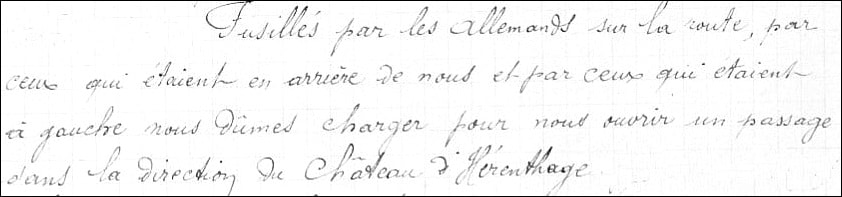 Fusillés par les allemands sur la route, par
ceux qui étaient en arrière de nous et par ceux qui etaient
à gauche nous dûmes charger pour nous ouvrir un passage
dans la direction du Château d'Hérenthage.